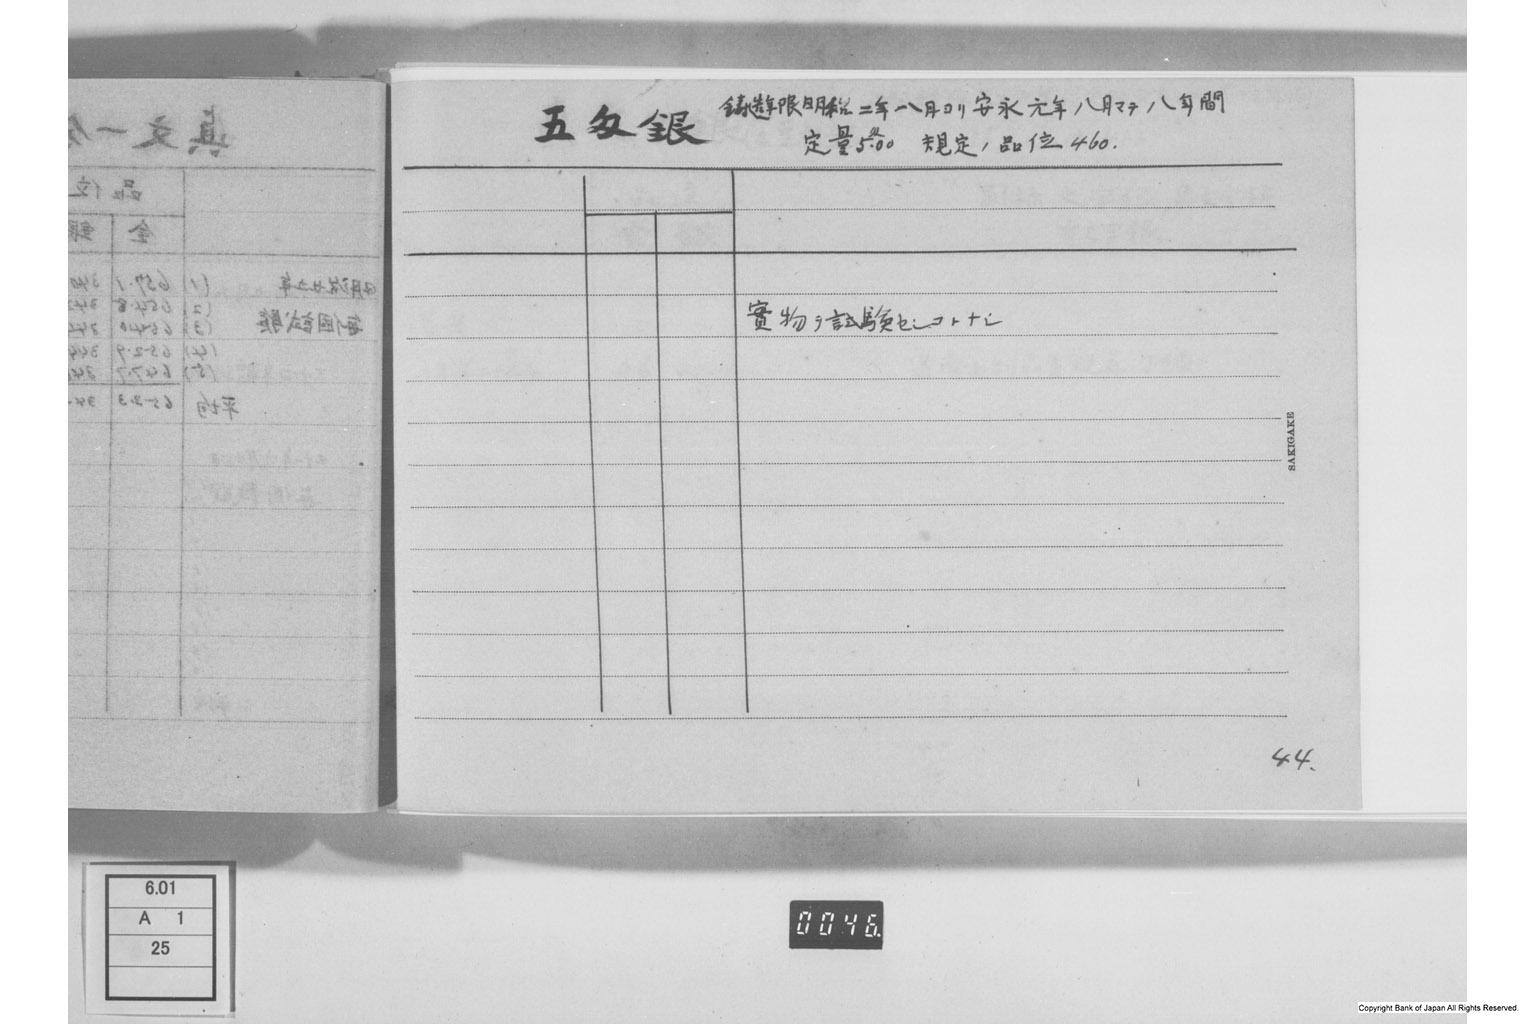 五匁銀
鋳造年限明和二年八月ヨリ安永元年八月マテ八年間
定量5.00 規定ノ品位460.
實物ヲ試験セシコトナシ
SAKIGAKE
44.
真文一分
品位
金 銀
明治廿七年 (1) 657.1 340
毎個宛試験 (2) 654.8
(3) 654.0
(4) 652.9 344
(5) 647.7
平均 652.3
6.01
A 1
25
0046
Copyright Bank of Japan All Rights Reserved.